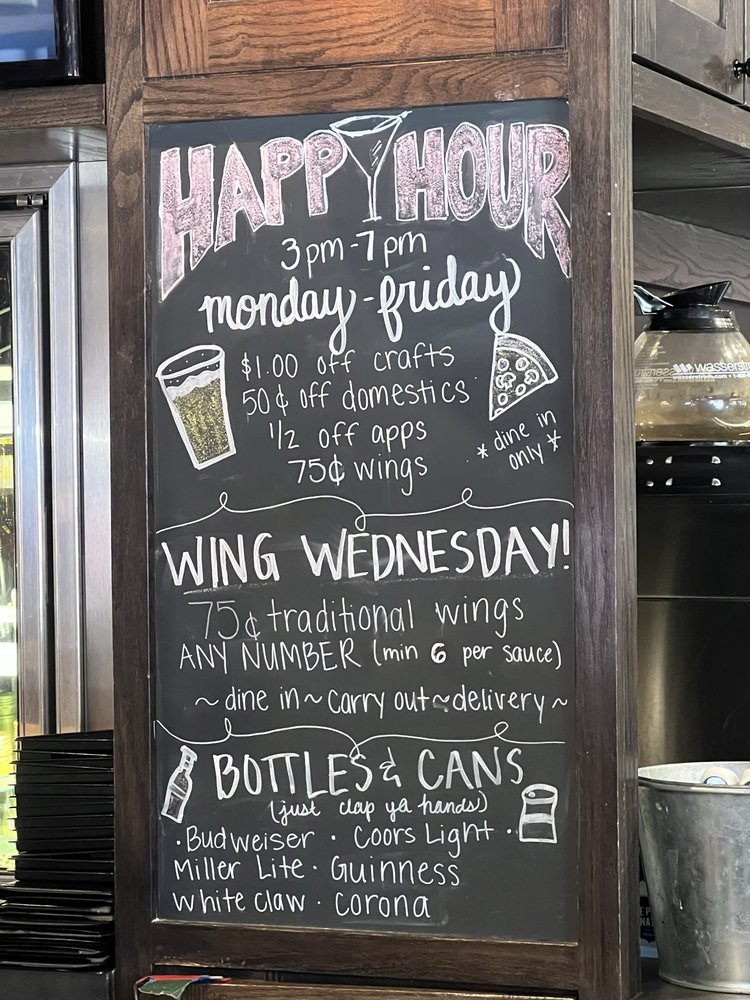 HAPPY HOUR
3pm-7pm
monday-friday
$1.00 off crafts
50¢ off domestics
1/2 off apps
75¢ wings
*dine in
only*
WING WEDNESDAY!
75¢ traditional wings
ANY NUMBER (min 6 per sauce)
~dine in~carry out~delivery~
BOTTLES & CANS
(just clap ya hands)
·Budweiser · Coors Light ·
Miller Lite · Guinness
White claw · corona
wasserstrom